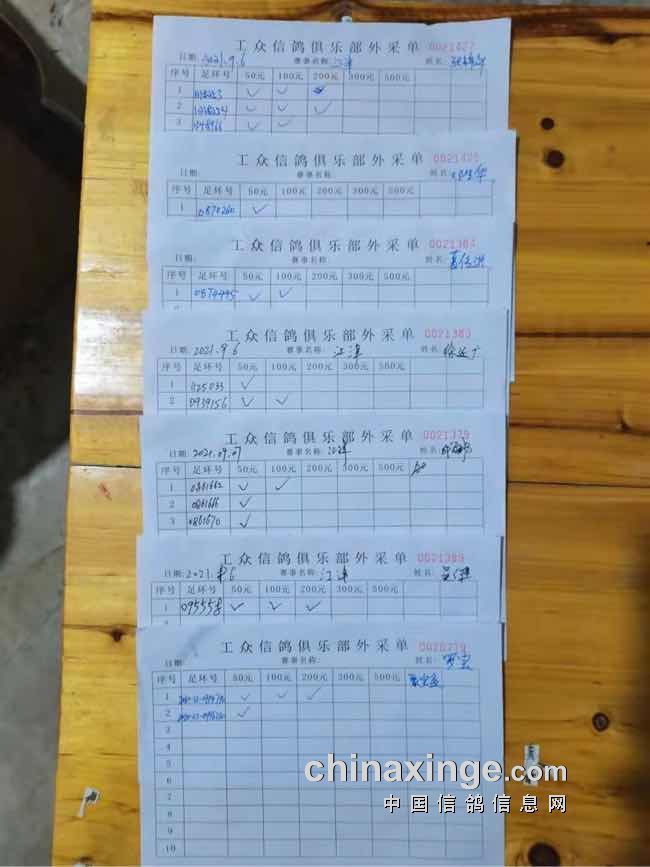 工众信鸽俱乐部外采单 0021427
日期: 2021.9.6 赛事名称: 江津 姓名:
序号 足环号 50元 100元 200元 300元 500元
1 ✓ ✓
2 ✓ ✓ ✓
3 ✓ ✓
工众信鸽俱乐部外采单
日期: 赛事名称: 姓名:
序号 足环号 50元 100元 200元 300元 500元
1 0870260 ✓
工众信鸽俱乐部外采单 0021384
日期: 赛事名称: 姓名:
序号 足环号 50元 100元 200元 300元 500元
1 0874495 ✓ ✓
工众信鸽俱乐部外采单 0021383
日期: 2021.9.6 赛事名称: 江津 姓名:
序号 足环号 50元 100元 200元 300元 500元
1 ✓
2 0939156 ✓ ✓
工众信鸽俱乐部外采单 0021379
日期: 2021.09.07 赛事名称: 江津 姓名:
序号 足环号 50元 100元 200元 300元 500元
1 0861662 ✓ ✓
2 0861666 ✓
3 0861670 ✓
工众信鸽俱乐部外采单 0021389
日期: 2021. 6 赛事名称: 江津 姓名:
序号 足环号 50元 100元 200元 300元 500元
1 095558 ✓ ✓ ✓
工众信鸽俱乐部外采单
日期: 赛事名称: 姓名: 罗宏
序号 足环号 50元 100元 200元 300元 500元
1 ✓ ✓ ✓
2 ✓
3
4
5
6
7
8
9
10
chinaxinge.com
中国信鸽信息网